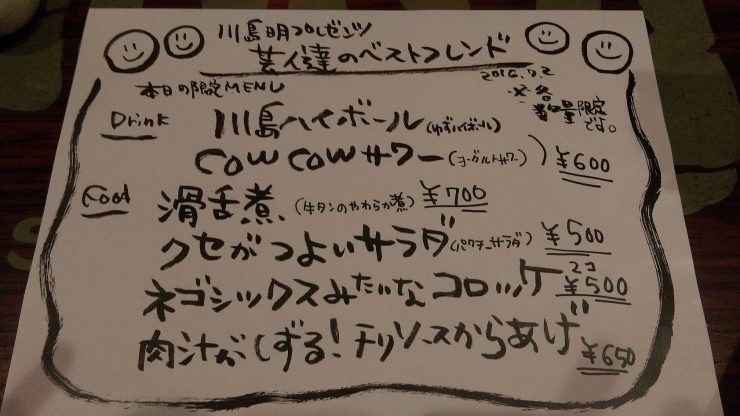 川島明プレゼンツ
芸人達のベストフレンド
2016.7.2
本日の限定MENU
※各
数量限定
です。
Drink 川島ハイボール(ゆずハイボール)
COWCOWサワー(ヨーグルトサワー) ¥600
Food 滑舌煮(牛タンのやわらか煮) ¥700
クセがつよいサラダ(パクチーサラダ) ¥500
ネゴシックスみたいなコロッケ 2コ ¥500
肉汁がしずる!チリソースからあげ ¥650